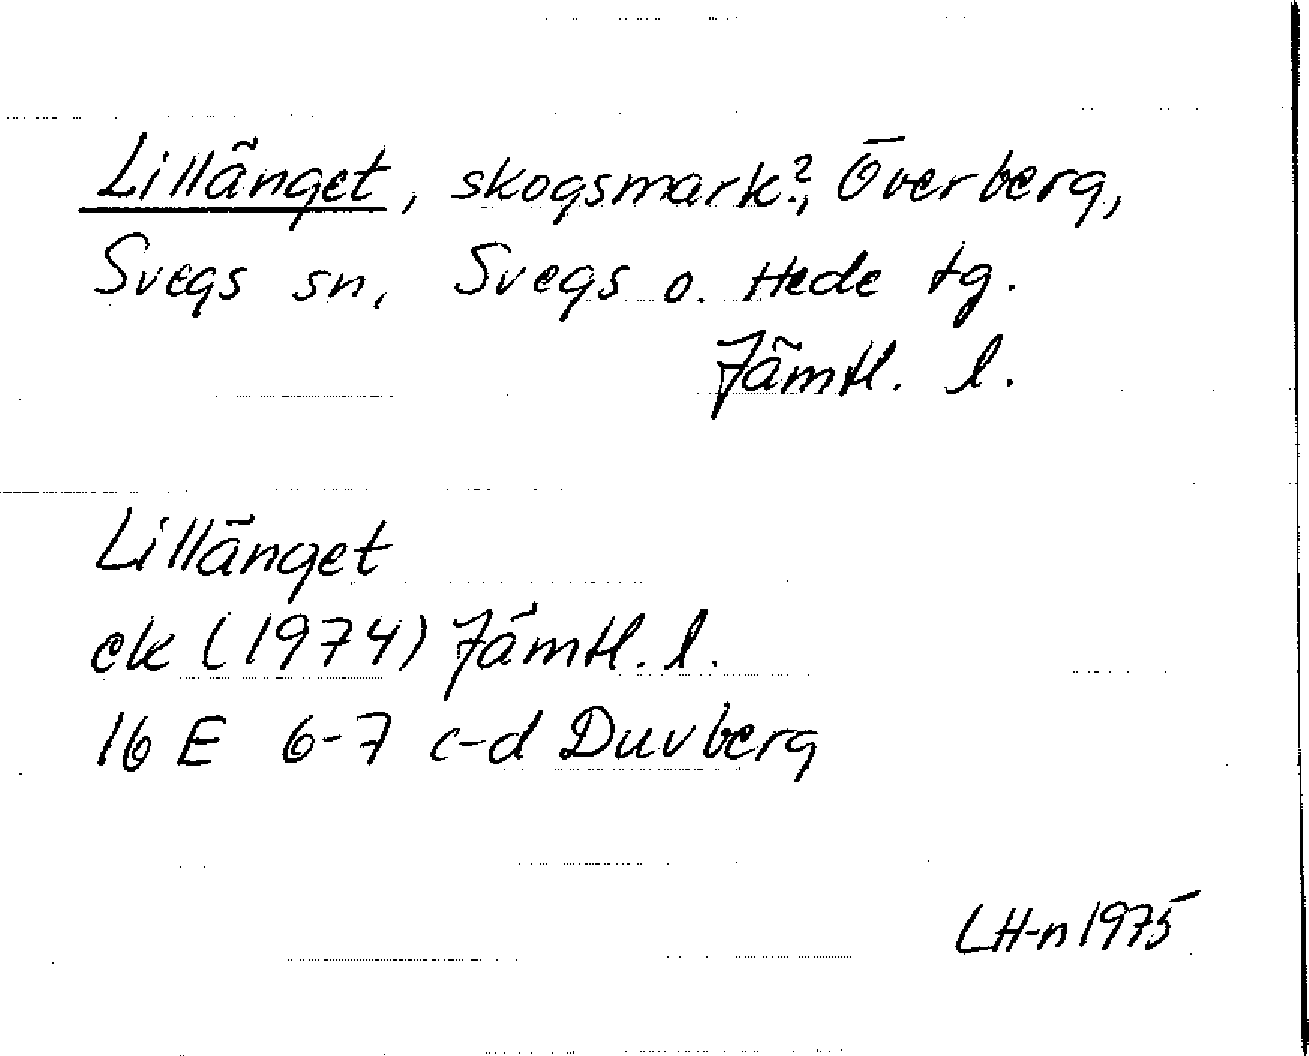 Lillänget, skogsmark?, Överberg,
Svegs sn, Svegs o. Hede tg.
Jämtl. l.
Lillänget
ek (1974) Jämtl. l.
16 E 6-7 c-d Duvberg
LH-n 1975